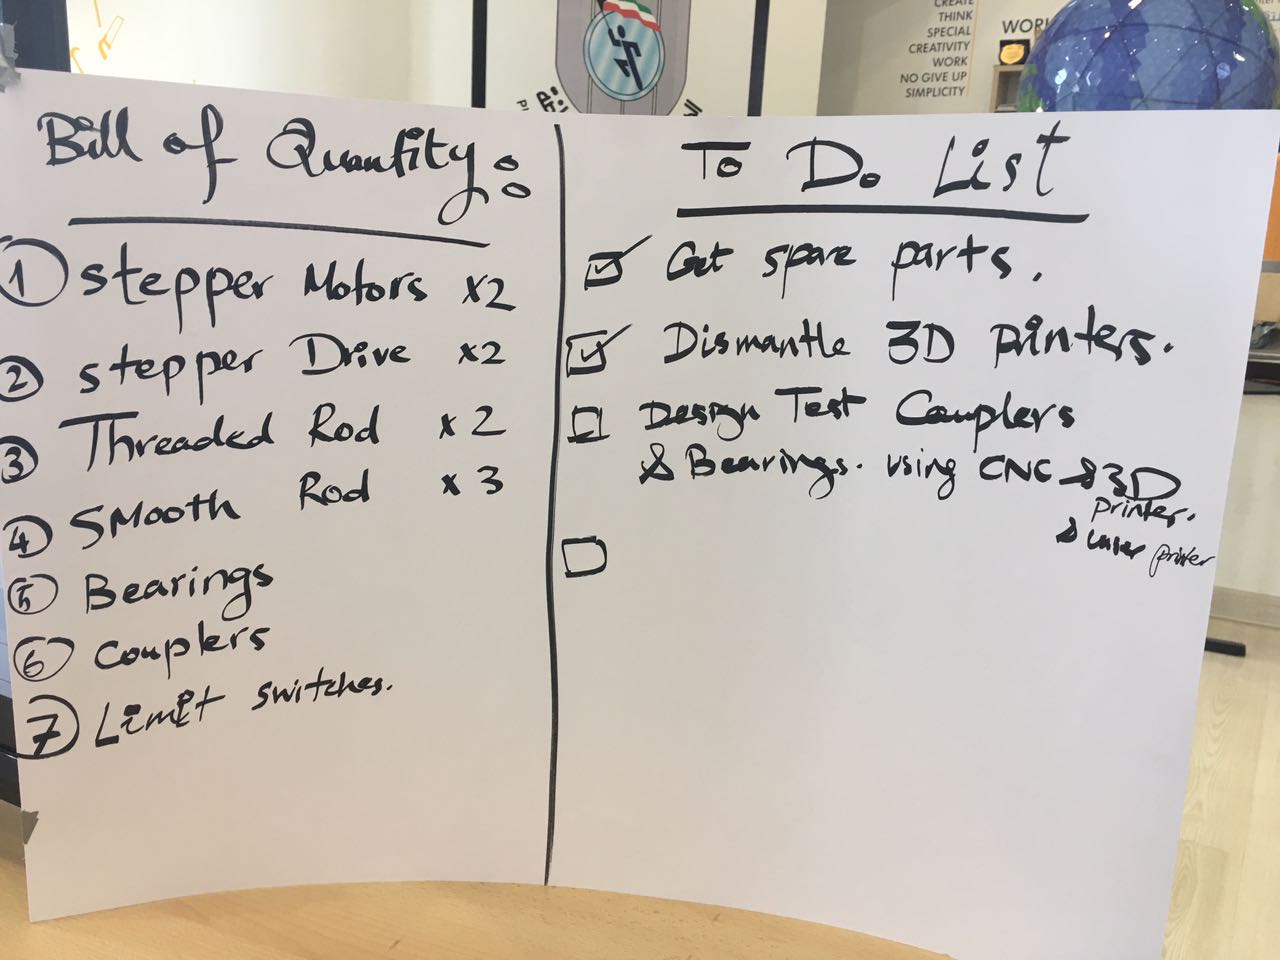 CREATE
THINK
SPECIAL
CREATIVITY
WORK
NO GIVE UP
SIMPLICITY
Bill of Quantity:
① stepper Motors x2
② stepper Drive x2
③ Threaded Rod x2
④ Smooth Rod x3
⑤ Bearings
⑥ Couplers
⑦ Limit switches.
To Do List
☑ Get spare parts.
☑ Dismantle 3D printers.
☐ Design Test Couplers
& Bearings. using CNC & 3D
printer.
& laser printer
☐